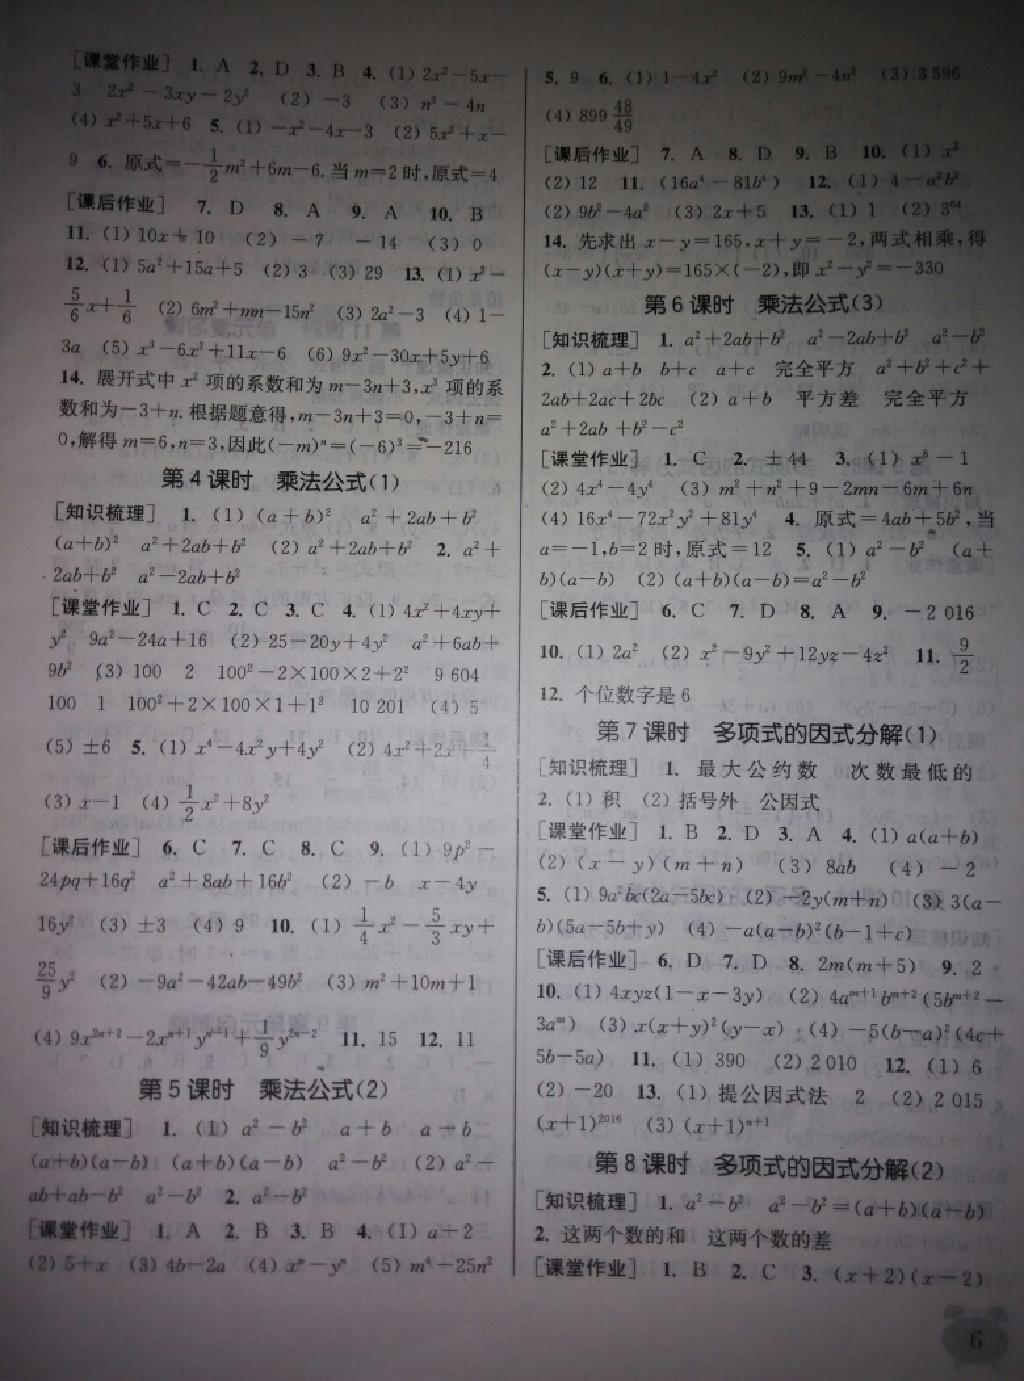 [课堂作业] 1. A 2. D 3. B 4. (1) 2x²－5x－
3 2x²－3xy－2y² (2) －3 (3) n³－4n
(4) x²＋5x＋6 5. (1) －x²－4x－3 (2) 5x²＋x－
9 6. 原式＝－1/2 m²＋6m－6. 当 m＝2 时,原式＝4
[课后作业] 7. D 8. A 9. A 10. B
11. (1) 10x＋10 (2) －7 －14 (3) 0
12. (1) 5a²＋15a＋5 (2) 3 (3) 29 13. (1) x²－
5/6 x＋1/6 (2) 6m²＋mn－15n² (3) 2a²－3 (4) 1－
3a (5) x³－6x²＋11x－6 (6) 9x²－30x＋5y＋6
14. 展开式中 x² 项的系数和为 m－3n＋3,x³ 项的系
数和为－3＋n. 根据题意得,m－3n＋3＝0,－3＋n＝
0,解得 m＝6,n＝3,因此(－m)ⁿ＝(－6)³＝－216
第4课时 乘法公式(1)
[知识梳理] 1. (1) (a＋b)² a²＋2ab＋b²
(a＋b)² a²＋2ab＋b² (2) a²＋2ab＋b² 2. a²＋
2ab＋b² a²－2ab＋b²
[课堂作业] 1. C 2. C 3. C 4. (1) 4x²＋4xy＋
y² 9a²－24a＋16 (2) 25－20y＋4y² a²＋6ab＋
9b² (3) 100 2 100²－2×100×2＋2² 9 604
100 1 100²＋2×100×1＋1² 10 201 (4) 5
(5) ±6 5. (1) x⁴－4x²y＋4y² (2) 4x²＋2x＋1/4
(3) x－1 (4) 1/2 x²＋8y²
[课后作业] 6. C 7. C 8. C 9. (1) 9p²－
24pq＋16q² a²＋8ab＋16b² (2) －b x－4y
16y² (3) ±3 (4) 9 10. (1) 1/4 x²－5/3 xy＋
25/9 y² (2) －9a²－42ab－49b² (3) m²＋10m＋1
(4) 9x²ⁿ⁺²－2xⁿ⁺¹yⁿ⁻¹＋1/9 y²ⁿ⁻² 11. 15 12. 11
第5课时 乘法公式(2)
[知识梳理] 1. (1) a²－b² a＋b a－b
(a＋b)(a－b) (a＋b)(a－b) a²－b² (2) a²－
ab＋ab－b² a²－b² 2. a²－b²
[课堂作业] 1. A 2. B 3. B 4. (1) a＋2
(2) 5＋x (3) 4b－2a (4) xⁿ－yⁿ (5) m⁴－25n²
5. 9 6. (1) 1－4x² (2) 9m²－4n² (3) 3 596
(4) 899 48/49
[课后作业] 7. A 8. D 9. B 10. (1) x²
(2) 12 11. (16a⁴－81b⁴) 12. (1) 4－a²b²
(2) 9b²－4a² (3) 2x＋5 13. (1) 1 (2) 3⁶⁴
14. 先求出 x－y＝165,x＋y＝－2,两式相乘,得
(x－y)(x＋y)＝165×(－2),即 x²－y²＝－330
第6课时 乘法公式(3)
[知识梳理] 1. a²＋2ab＋b² a²－2ab＋b² a²－b²
2. (1) a＋b b＋c a＋c 完全平方 a²＋b²＋c²＋
2ab＋2ac＋2bc (2) a＋b 平方差 完全平方
a²＋2ab＋b²－c²
[课堂作业] 1. C 2. ±44 3. (1) x⁸－1
(2) 4x⁴－4y⁴ (3) m²＋n²＋9－2mn－6m＋6n
(4) 16x⁴－72x²y²＋81y⁴ 4. 原式＝4ab＋5b²,当
a＝－1,b＝2 时,原式＝12 5. (1) a²－b² (a＋
b)(a－b) (2) (a＋b)(a－b)＝a²－b²
[课后作业] 6. C 7. D 8. A 9. －2 016
10. (1) 2a² (2) x²－9y²＋12yz－4z² 11. 9/2
12. 个位数字是 6
第7课时 多项式的因式分解(1)
[知识梳理] 1. 最大公约数 次数最低的
2. (1) 积 (2) 括号外 公因式
[课堂作业] 1. B 2. D 3. A 4. (1) a(a＋b)
(2) (x－y)(m＋n) (3) 8ab (4) －2
5. (1) 9a²bc(2a－5bc) (2) －2y(m＋n) (3) 3(a－
b)(5a－5b＋y) (4) －a(a－b)²(b－1＋c)
[课后作业] 6. D 7. D 8. 2m(m＋5) 9. 2
10. (1) 4xyz(1－x－3y) (2) 4aᵐ⁺¹bᵐ⁺²(5bᵐ⁺²－
3aᵐ) (3) x(x＋y)²(y－x) (4) －5(b－a)²(4c＋
5b－5a) 11. (1) 390 (2) 2 010 12. (1) 6
(2) －20 13. (1) 提公因式法 2 (2) 2 015
(x＋1)²⁰¹⁶ (3) (x＋1)ⁿ⁺¹
第8课时 多项式的因式分解(2)
[知识梳理] 1. a²－b² a²－b²＝(a＋b)(a－b)
2. 这两个数的和 这两个数的差
[课堂作业] 1. B 2. C 3. (x＋2)(x－2)
6